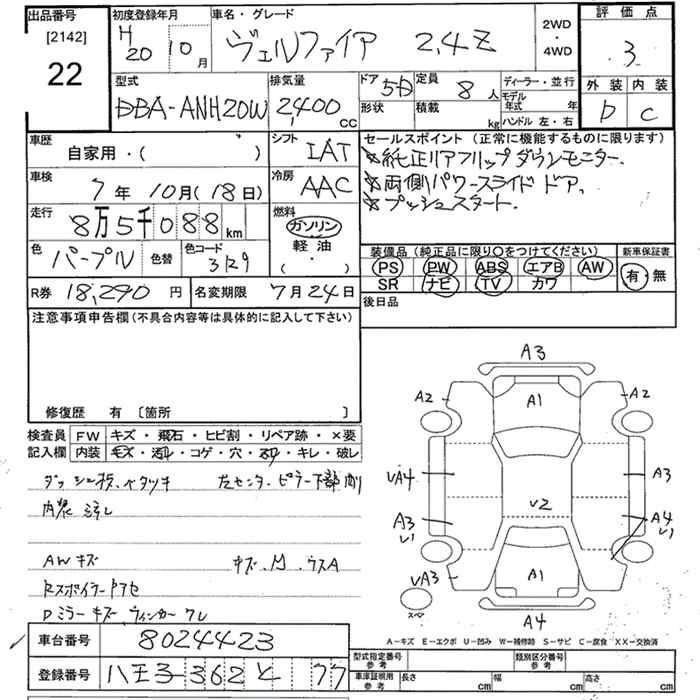 出品番号 初度登録年月 車名・グレード 2WD・4WD 評価点
[2142] H20 10月 ヴェルファイア 2.4Z 3
22 外装 内装
D C
型式 排気量 ドア 形状 定員 積載 ディーラー・並行
DBA-ANH20W 2,400CC 5D 8人 kg モデル年式 年
ハンドル 左・右
車歴 自家用・( ) シフト IAT
車検 7年10月(18日) 冷房 AAC
走行 8万5千088km 燃料 ガソリン 軽油 ( ・ )
色 パープル 色替 色コード 3129
R券 18,290円 名変期限 7月24日
セールスポイント(正常に機能するものに限ります)
☆純正リアフリップダウンモニター.
☆両側パワースライドドア,
☆プッシュスタート.
装備品(純正品に限り○をつけてください) 新車保証書
PS PW ABS エアB AW 有・無
SR ナビ TV カワ
後日品
注意事項申告欄(不具合内容等は具体的に記入して下さい)
修復歴 有 [箇所 ]
検査員 FW キズ・飛石・ヒビ割・リペア跡・×要
記入欄 内装 コゲ・穴 キレ・破レ
左センターピラー下部
内装
AWキズ キズ.
Dミラーキズ ウィンカーワレ
A3
A2 A1 A2
VA4 A3
V2
A3 V1 A4 V1
VA3 A1
スペア A4
A-キズ E-エクボ U-凹み W-補修跡 S-サビ C-腐食 XX-交換済
車台番号 8024423
登録番号 八王子362 と 77
型式指定番号 参考 類別区分番号 参考
車庫証明用 参考 長さ cm 幅 cm 高さ cm